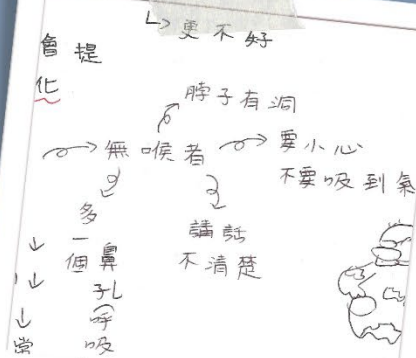 更不好
會提
化
脖子有洞
無喉者
要小心
不要吸到氣
多一個鼻孔呼吸
講話
不清楚
常